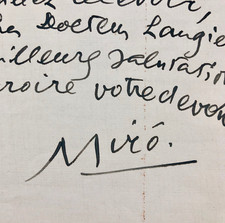 Docteur Laugie
illeurs salutation
croire votre dévou
Miró.